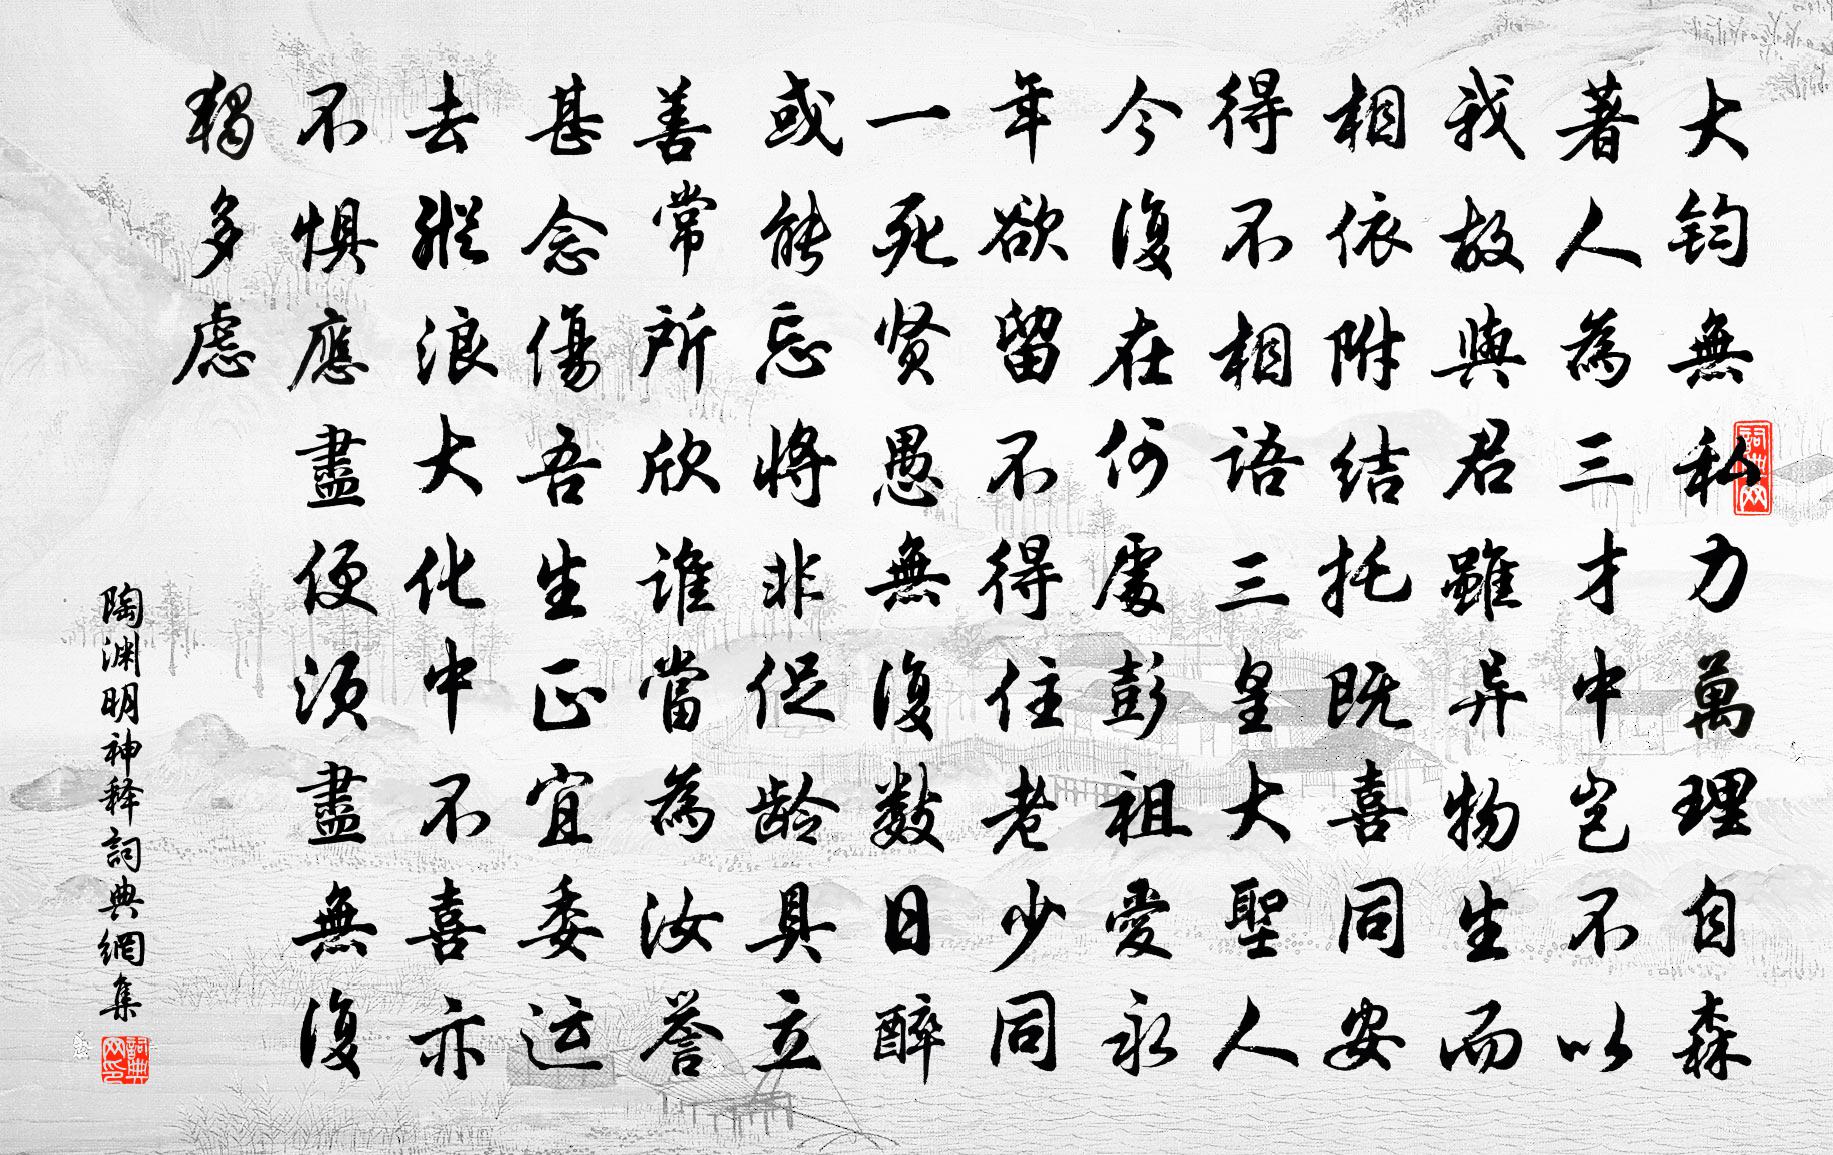 大鈞無私力萬理自森
著人為三才中岂不以
我故與君雖异物生而
相依附结托既喜同安
得不相語三皇大聖人
今復在何處彭祖愛永
年欲留不得住老少同
一死贤愚無復数日醉
或能忘將非促龄具立
善常所欣谁當為汝誉
甚念傷吾生正宜委运
去縱浪大化中不喜亦
不惧應盡便须盡無復
獨多慮
陶渊明神释詞典網集
詞典网
詞典网印